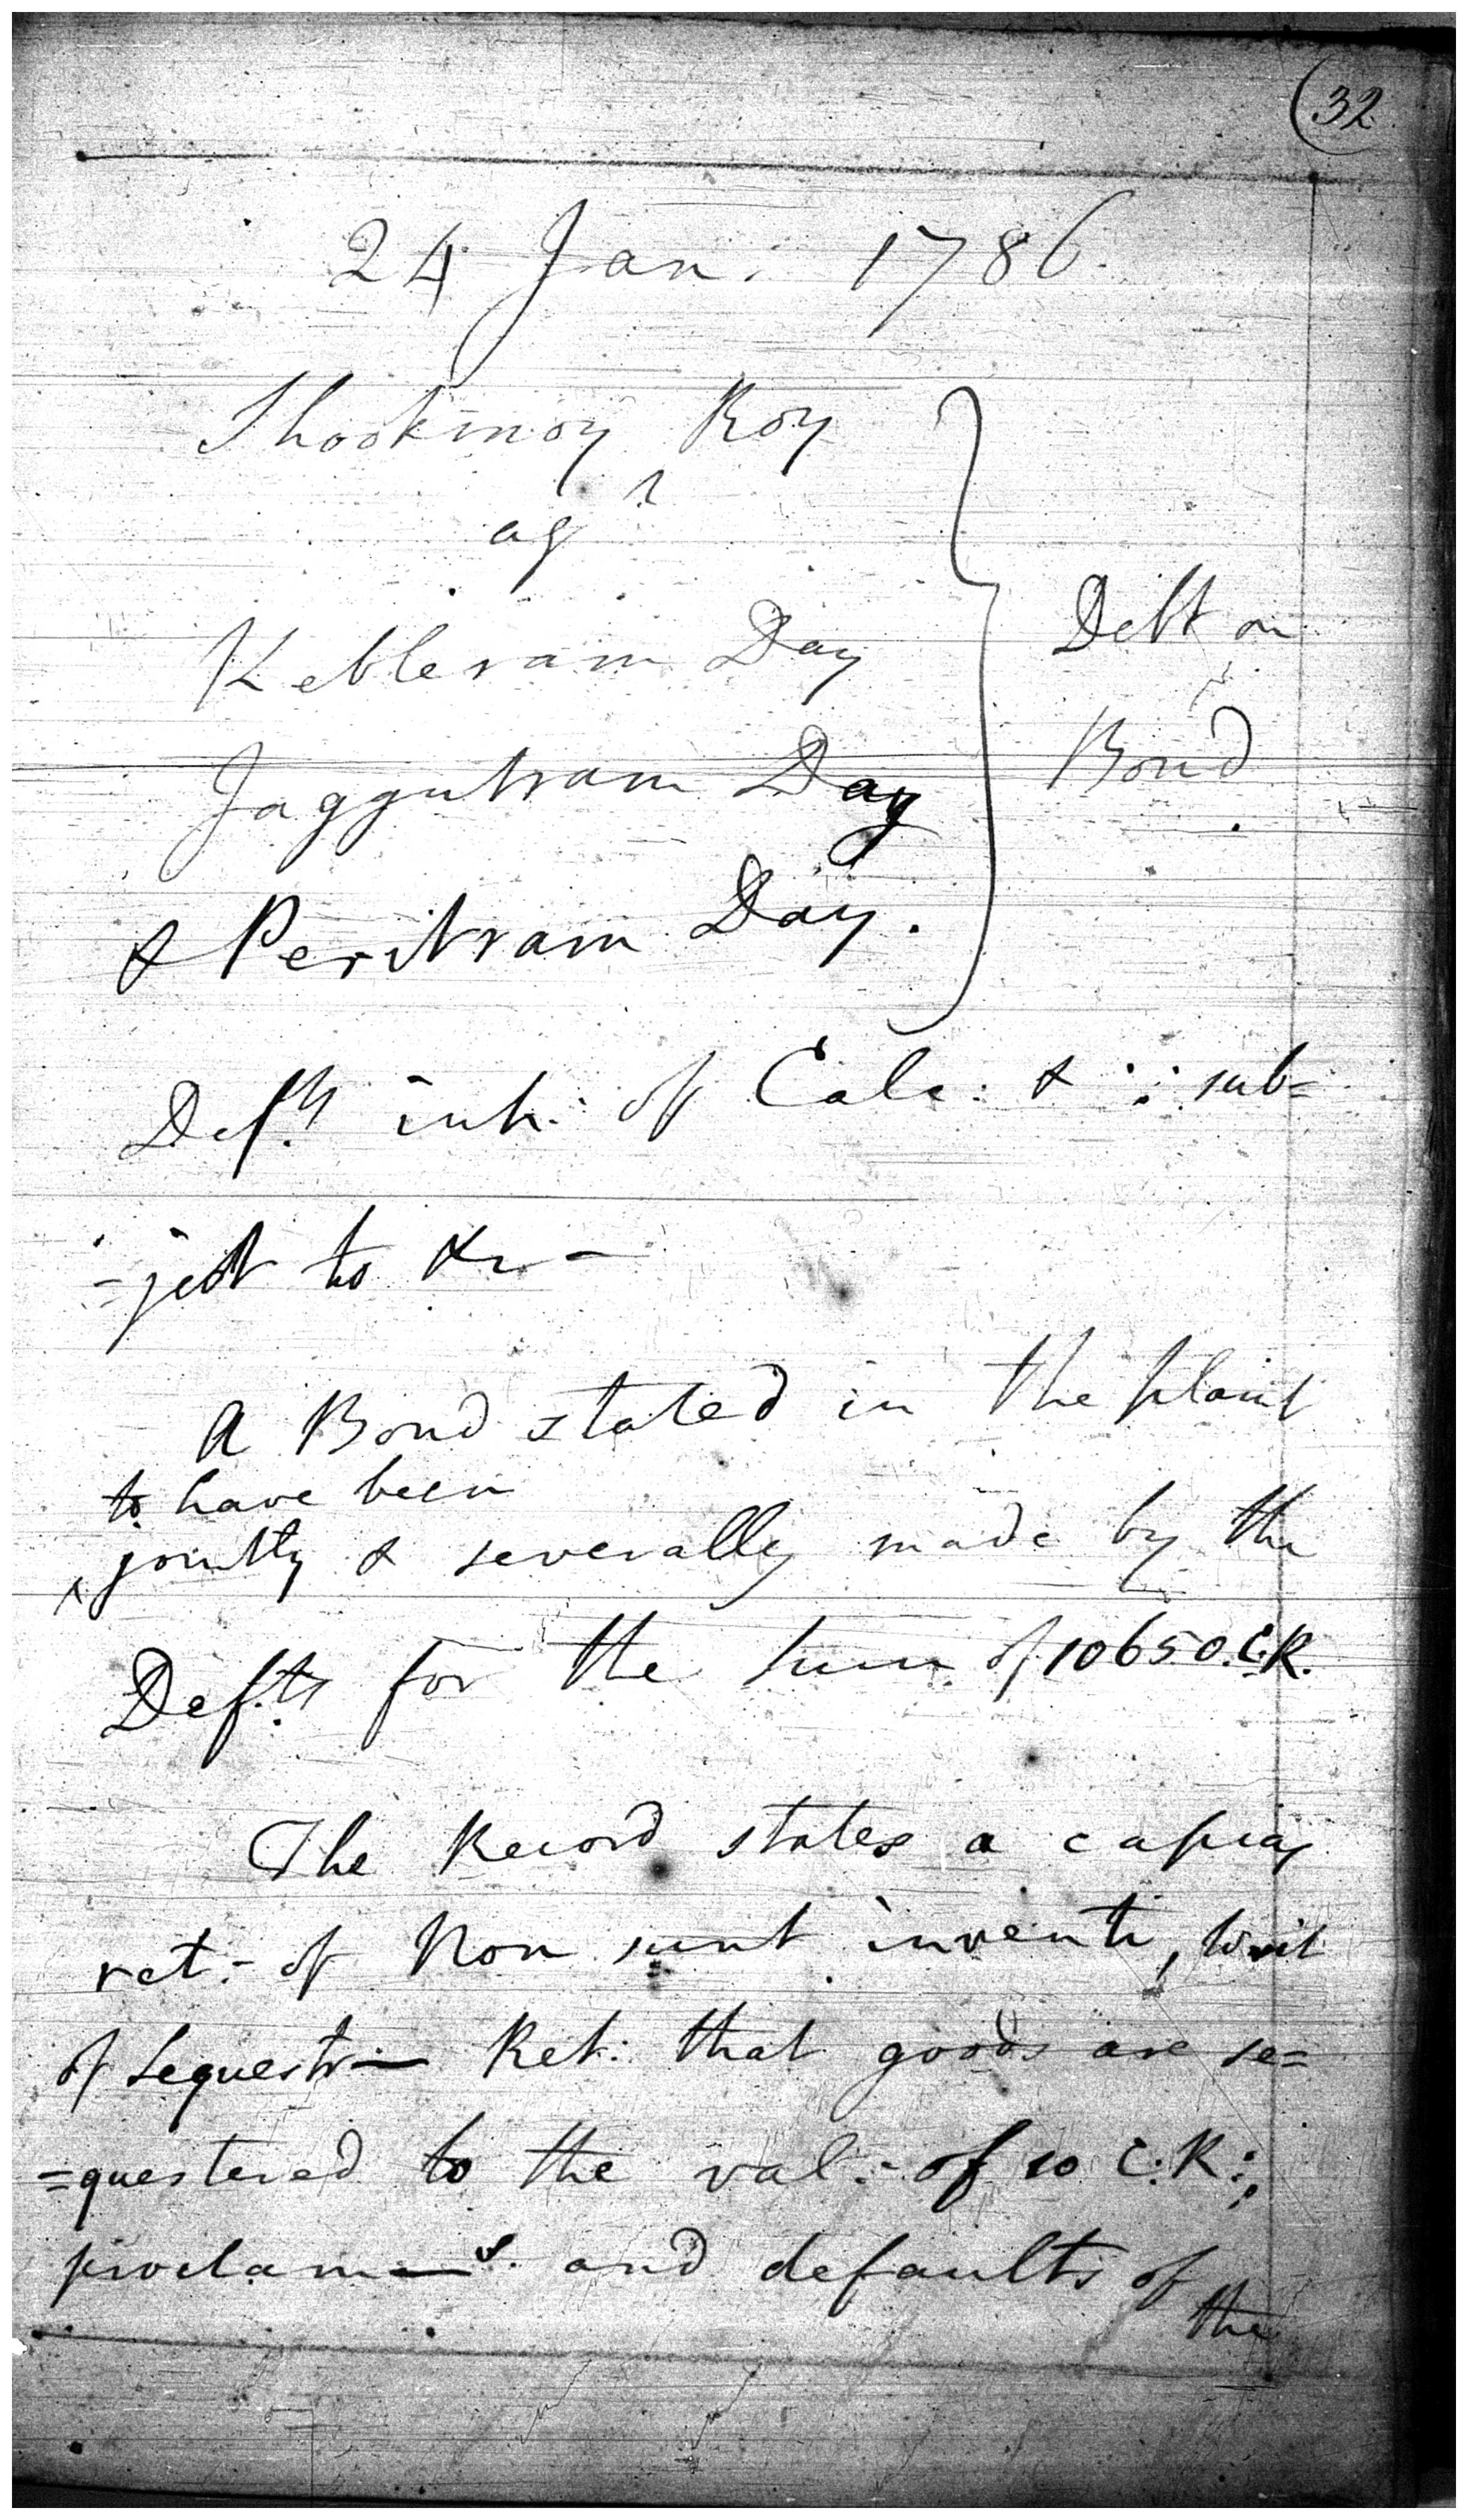 (32
24 Jan: 1786.
Shookmoy Roy
ag.t
Kebleram Day
Debt on
Jaggutram Day
Bond
& Peritram Day.
Def.ts inh: of Calc: & ∴ sub=
=ject to &c —
A Bond stated in the plaint
to have been
^ jointly & severally made by the
Def.ts for the sum of 10650.C.R.
The Record states a capias
ret:- of Non sunt inventi, writ
of Sequestr— Ret: that goods are se=
=questered to the val:- of 10 C:R:;
proclam—s. and defaults of
the